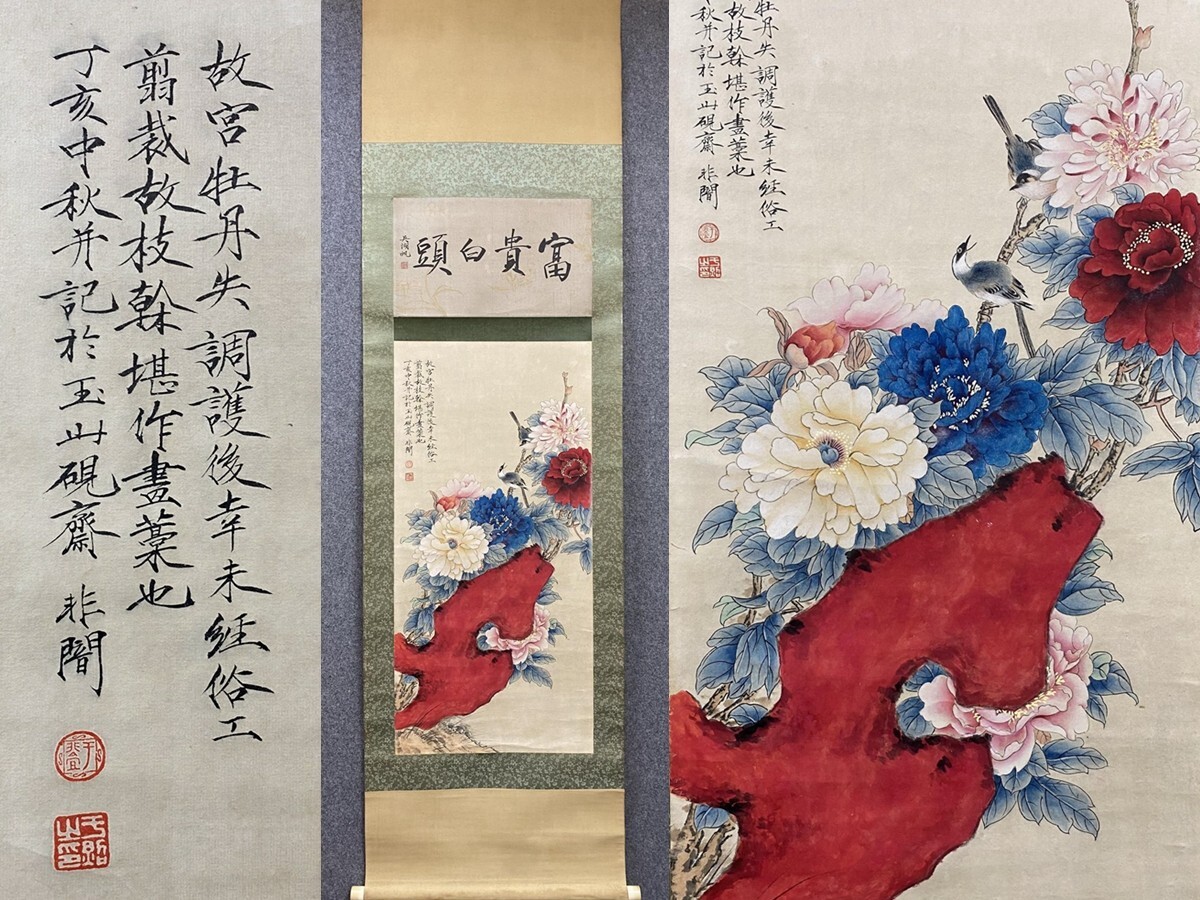 故宮牡丹失調護後幸未經俗工
翦裁故枝榦堪作畫藁也
丁亥中秋并記於玉山硯齋 非闇
富貴白頭
吳湖帆
故宮牡丹失調護後幸未經俗工
翦裁故枝榦堪作畫藁也
丁亥中秋并記於玉山硯齋 非闇
牡丹失調護後幸未經俗工
故枝榦堪作畫藁也
秋并記於玉山硯齋 非闇